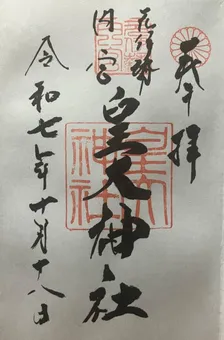 奉拝
元伊勢
内宮
皇大神社
令和七年十月十八日
皇大
神社